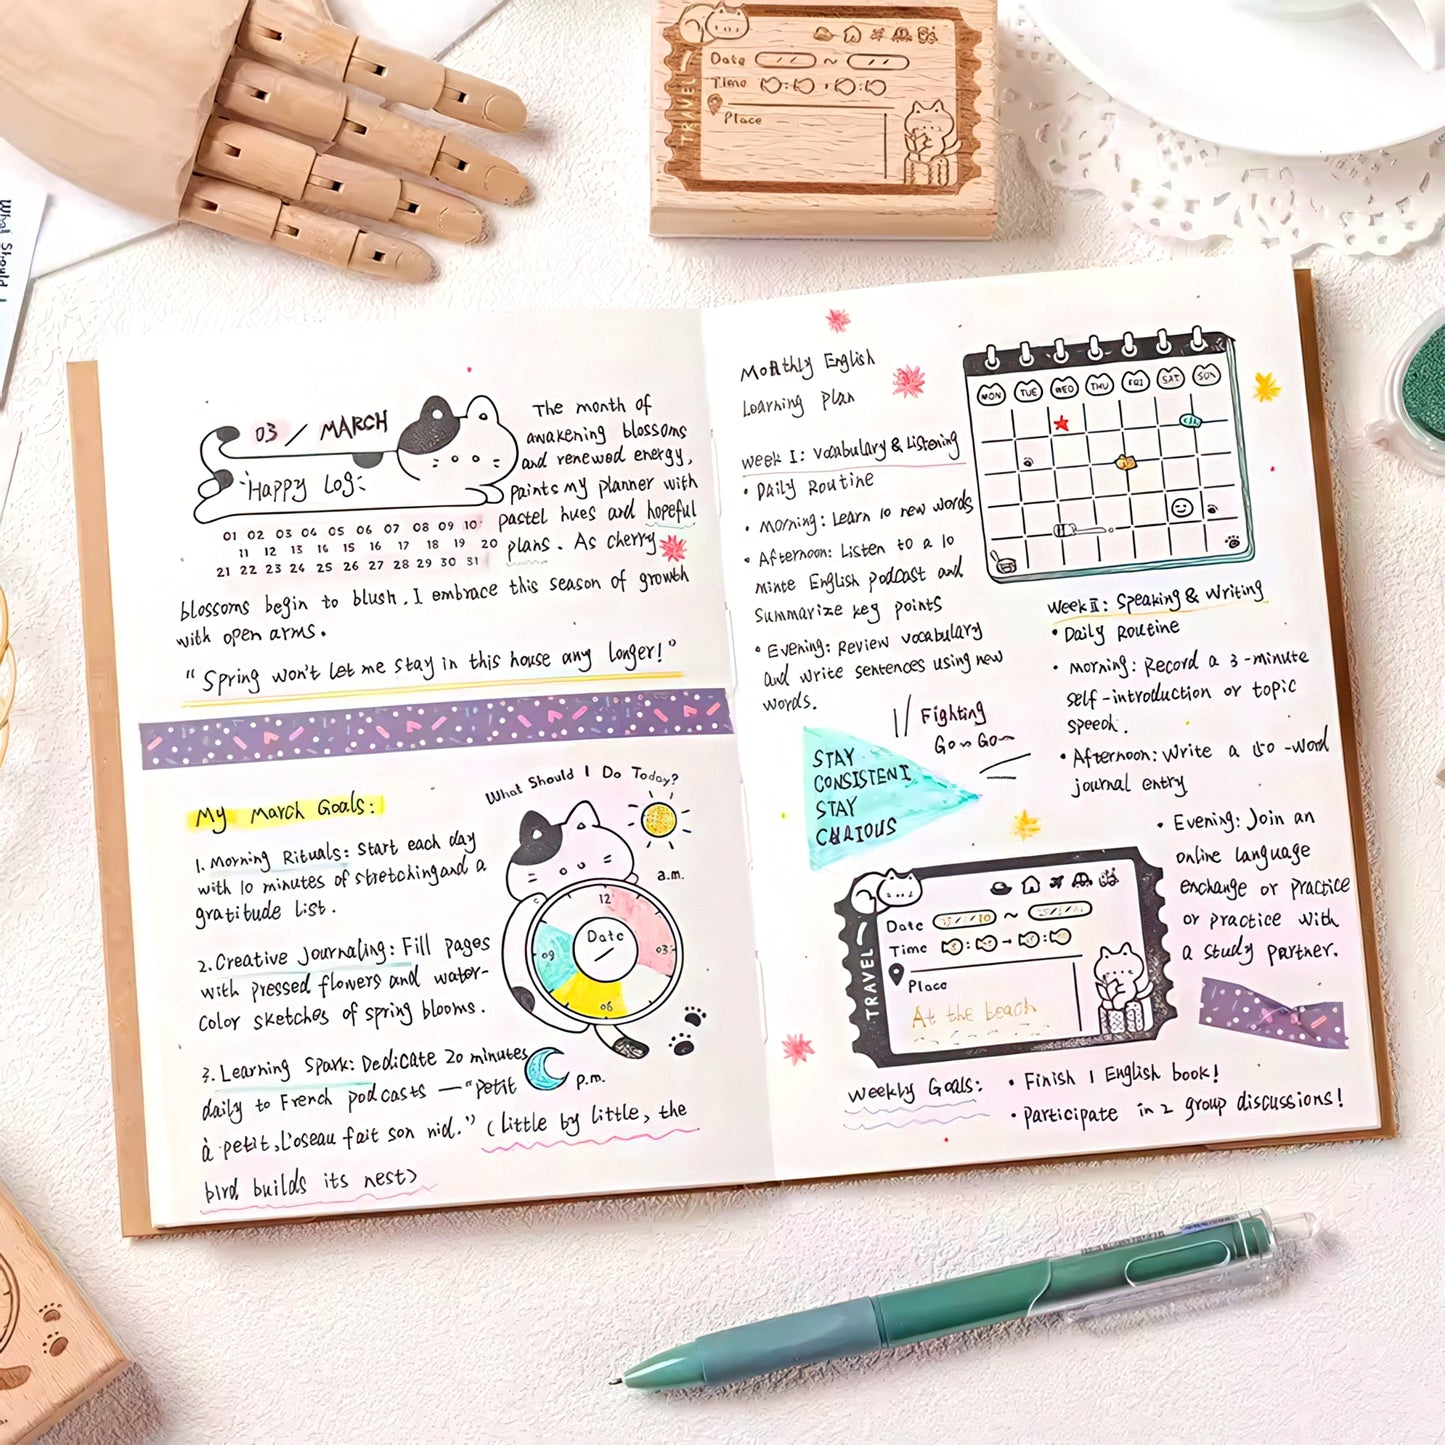 Date ~
Time : • :
Place
TRAVEL
What Should I
03 / MARCH
Happy Log
01 02 03 04 05 06 07 08 09 10
11 12 13 14 15 16 17 18 19 20
21 22 23 24 25 26 27 28 29 30 31
The month of
awakening blossoms
and renewed energy,
paints my planner with
pastel hues and hopeful
plans. As cherry
blossoms begin to blush, I embrace this season of growth
with open arms.
"Spring won't let me stay in this house any longer!"
My March Goals:
1. Morning Rituals: Start each day
with 10 minutes of stretching and a
gratitude list.
2. Creative Journaling: Fill pages
with pressed flowers and water-
color sketches of spring blooms.
3. Learning Spark: Dedicate 20 minutes
daily to French podcasts — "Petit
à petit, L'oseau fait son nid." (Little by little, the
bird builds its nest)
What Should I Do Today?
a.m.
12
03
06
09
Date
p.m.
Monthly English
Learning Plan
Week I: Vocabulary & Listening
• Daily Routine
• Morning: Learn 10 new words
• Afternoon: Listen to a 10
minte English podcast and
Summarize key points
• Evening: Review vocabulary
and write sentences using new
words.
MON TUE WED THU FRI SAT SUN
Week II: Speaking & Writing
• Daily Routine
• Morning: Record a 3-minute
self-introduction or topic
speech.
• Afternoon: Write a -word
journal entry
• Evening: Join an
online language
exchange or practice
or practice with
a study partner.
Fighting
Go~ Go~
STAY
CONSISTENT
STAY
Date ~
Time : - :
Place
TRAVEL
At the beach
Weekly Goals:
• Finish 1 English book!
• Participate in 2 group discussions!